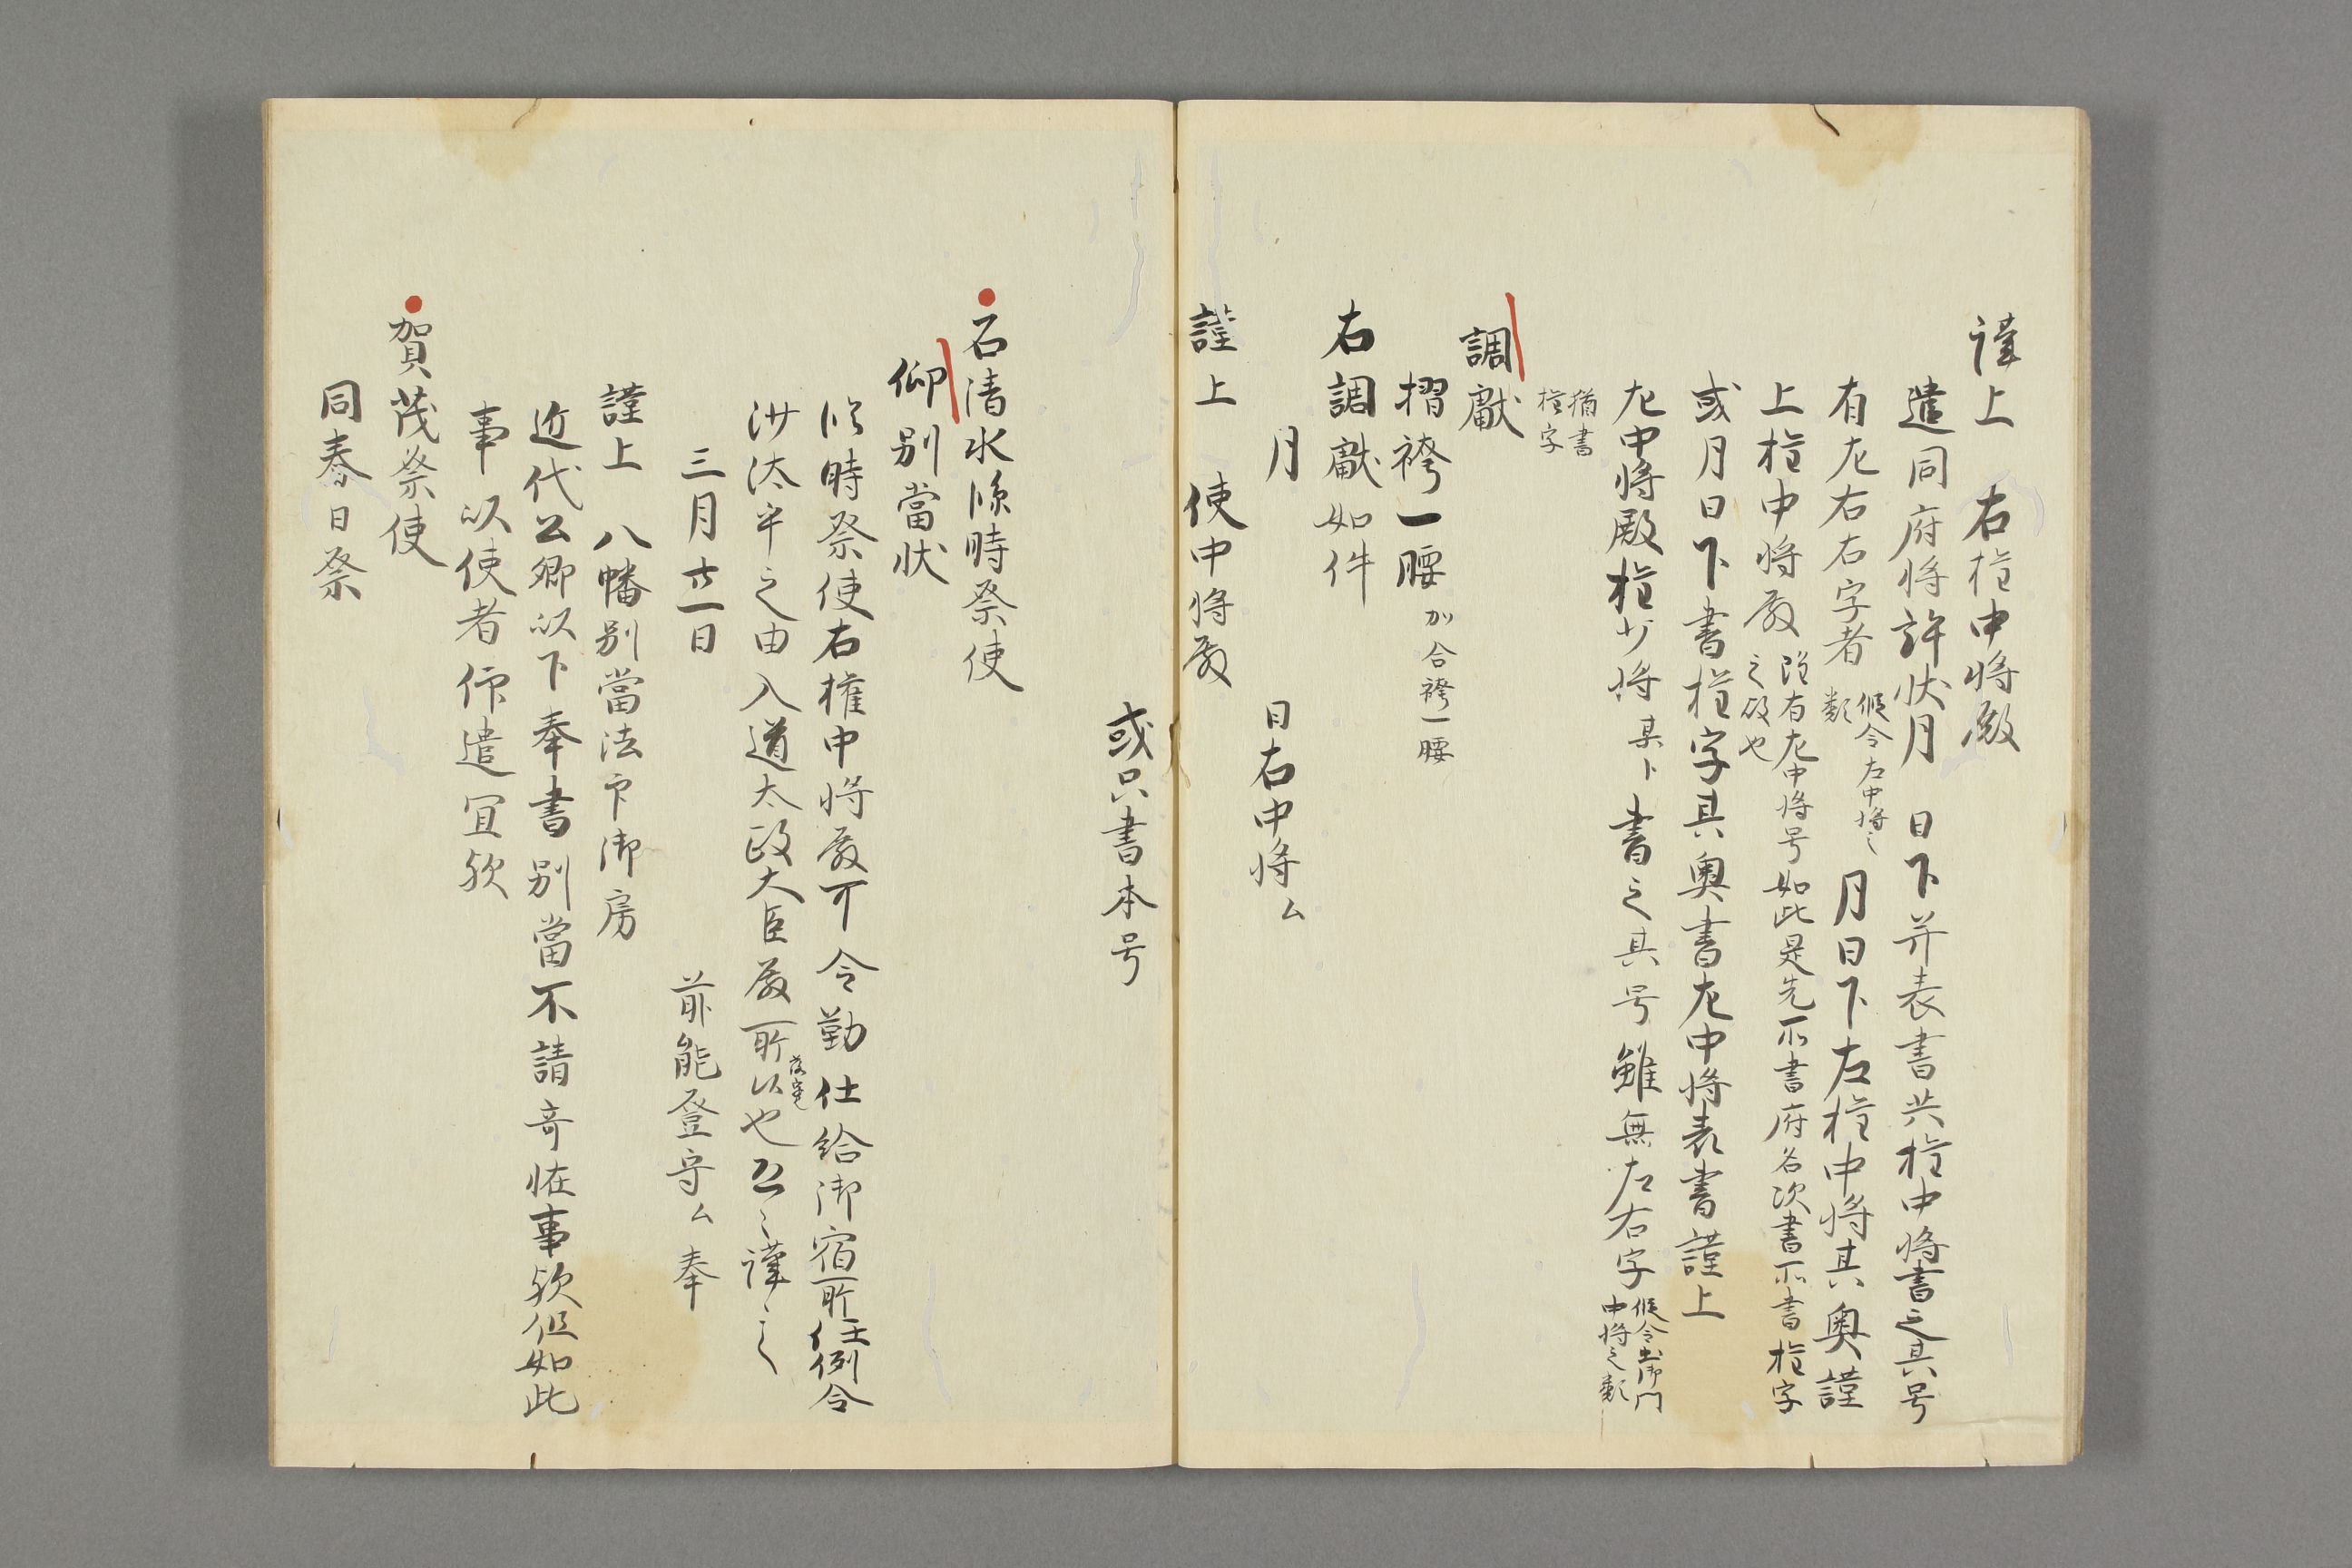 謹上　右権中将殿
遣同府将許状月　日下并表書共権中将書之其号
有左右右字者
仮令左中将之
類
月日下左権中将其奥謹
上権中将殿
既有左中将号如此是先不書府名次書不書権字
之故也
或月日下書権字其奥書左中将表書謹上
左中将殿権少将
某ト
書之其号雖無左右字
仮令土御門
中将之類
猶書
権字
調献
摺袴一腰
加合袴一腰
右調献如件
月　日右中将ム
謹上　使中将殿
或只書本号
石清水臨時祭使
仰別當状
臨時祭使右権中将殿可令勤仕給御宿所任例令
沙汰半之由入道太政大臣殿所以也
恐々謹々
三月廿一日　前能登守ム奉
謹上　八幡別當法印御房
近代公卿以下奉書別當不請奇恠事歟但如此
事以使者仰遣宜歟
賀茂祭使
同春日祭